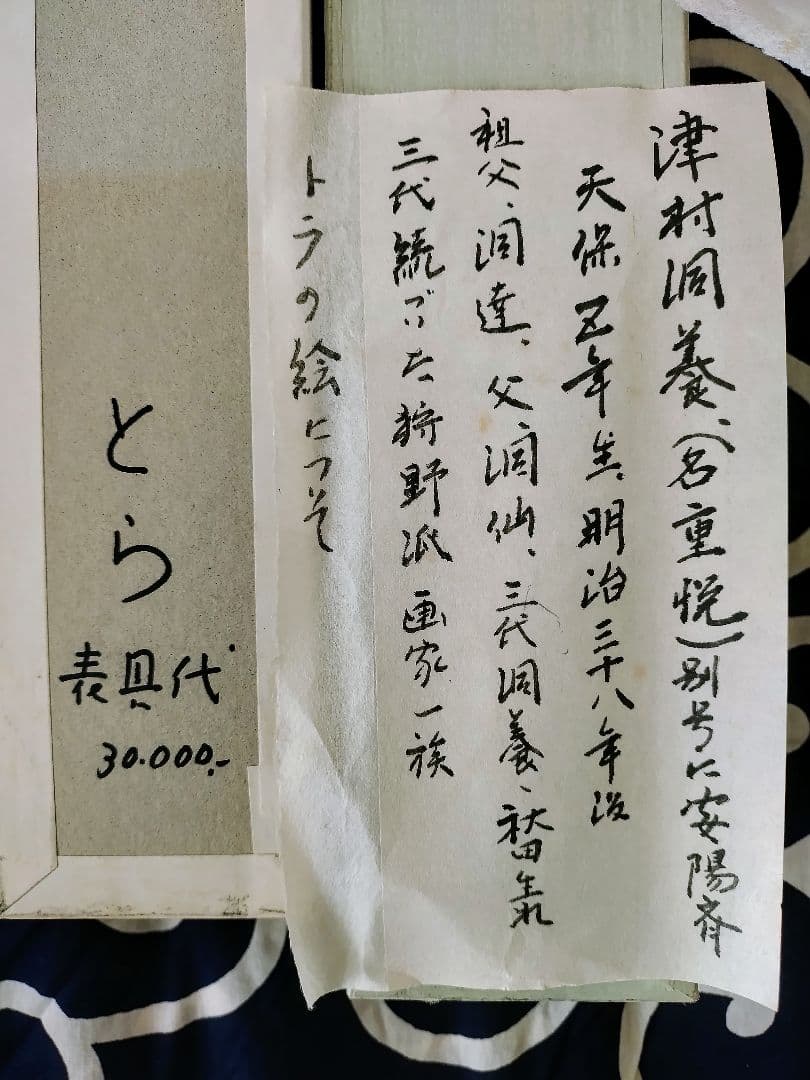 津村洞養、(名重悦)別号に安陽斉
天保五年生、明治三十八年没
祖父、洞達、父、洞仙、三代洞養、秋田生れ
三代続いた狩野派画家一族
トラの絵について
とら
表具代
30.000.-